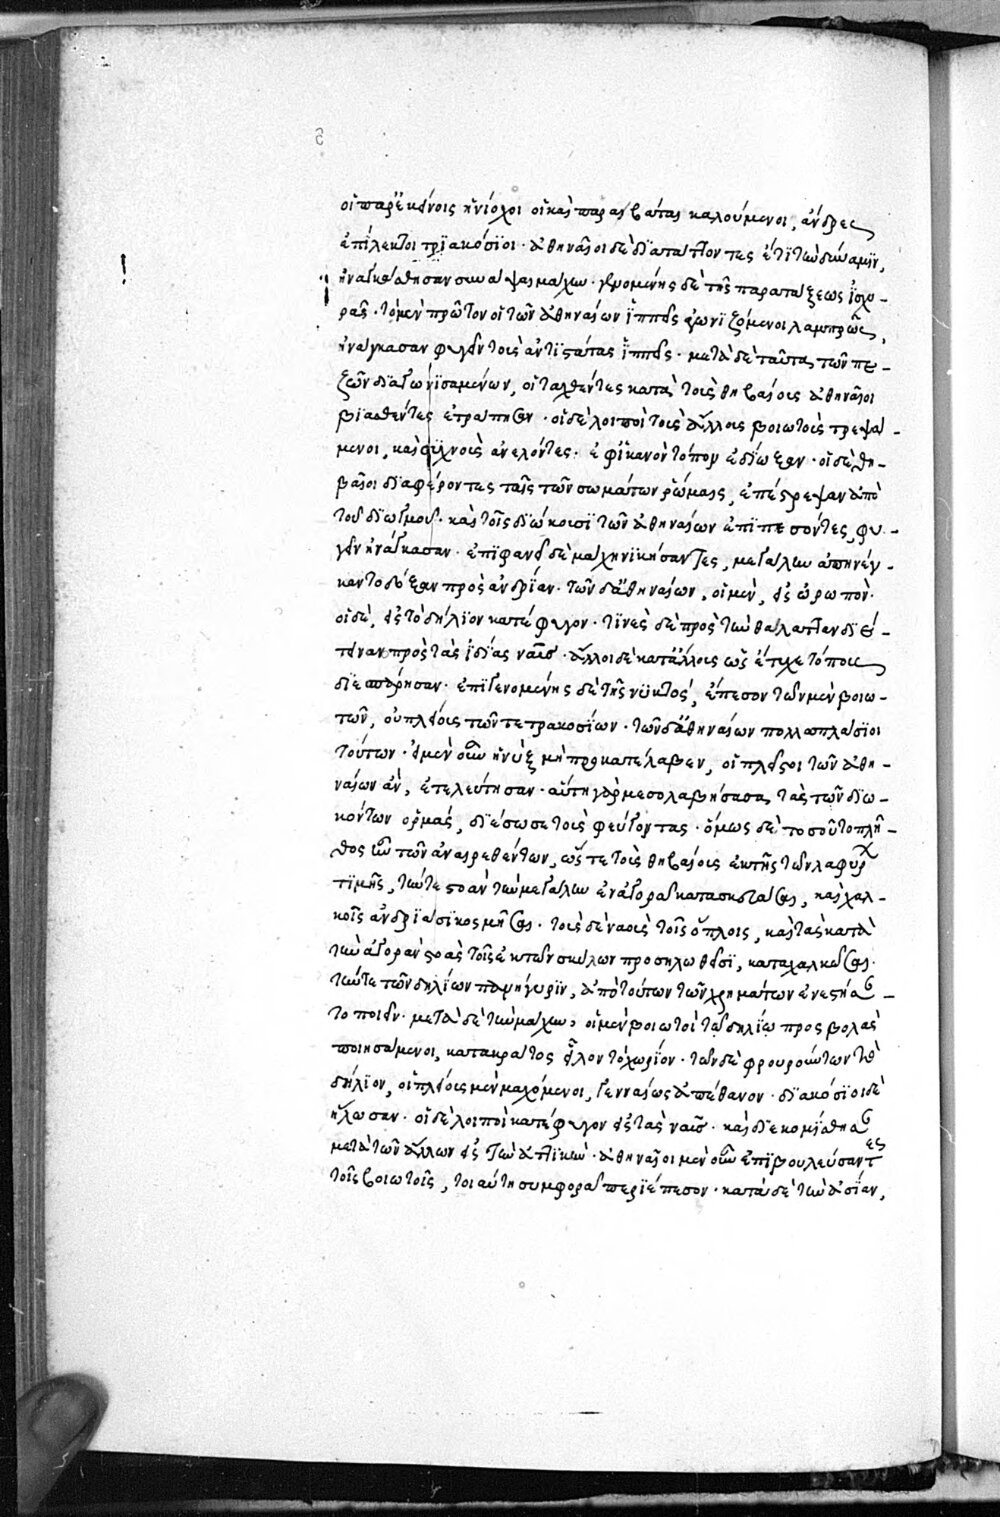 οἱ παρ' ἐκείνοις ἡνίοχοι οἱ καὶ παραβάται καλούμενοι, ἄνδρες
ἐπίλεκτοι τριακόσιοι· ἀθηναῖοι δὲ διατάττοντες ἔτι τὴν δύναμιν,
ἠναγκάσθησαν συνάψαι μάχην· γενομένης δὲ τῆς παρατάξεως ἰσχυ-
ρᾶς· τὸ μὲν πρῶτον οἱ τῶν ἀθηναίων ἱππεῖς ἀγωνιζόμενοι λαμπρῶς,
ἠνάγκασαν φυγεῖν τοὺς ἀντιστάντας ἱππεῖς· μετὰ δὲ ταῦτα τῶν πε-
ζῶν διαγωνισαμένων, οἱ ταχθέντες κατὰ τοὺς θηβαίους ἀθηναῖοι
βιασθέντες ἐτράπησαν· οἱ δὲ λοιποὶ τοὺς ἄλλους βοιωτοὺς τρεψά-
μενοι, καὶ συχνοὺς ἀνελόντες· ἐφ' ἱκανὸν τόπον ἐδίωξαν· οἱ δὲ θη-
βαῖοι διαφέροντες ταῖς τῶν σωμάτων ῥώμαις, ἐπέστρεψαν ἀπὸ
τοῦ διωγμοῦ· καὶ τοῖς διώκουσι τῶν ἀθηναίων ἐπιπεσόντες, φυ-
γεῖν ἠνάγκασαν· ἐπιφανεῖ δὲ μάχῃ νικήσαντες, μεγάλην ἀπηνέγ-
καντο δόξαν πρὸς ἀνδρίαν· τῶν δ' ἀθηναίων, οἱ μὲν, εἰς ὠρωπόν·
οἱ δὲ, εἰς τὸ δήλιον κατέφυγον· τινὲς δὲ πρὸς τὴν θάλατταν διέ-
τειναν πρὸς τὰς ἰδίας ναῦς· ἄλλοι δὲ κατ' ἄλλους ὡς ἔτυχε τόπους
διεσπάρησαν· ἐπιγενομένης δὲ τῆς νυκτὸς, ἔπεσον τῶν μὲν βοιω-
τῶν, οὐ πλείους τῶν τετρακοσίων· τῶν δ' ἀθηναίων πολλαπλάσιοι
τούτων· εἰ μὲν οὖν ἡ νὺξ μὴ προκατέλαβεν, οἱ πλεῖστοι τῶν ἀθη-
ναίων ἂν, ἐτελεύτησαν· αὕτη γὰρ μεσολαβήσασα τὰς τῶν διω-
κόντων ὁρμάς, διέσωσε τοὺς φεύγοντας· ὅμως δὲ τοσοῦτο πλῆ-
θος ἦν τῶν ἀναιρεθέντων, ὥστε τοὺς θηβαίους ἐκ τῆς τῶν λαφύρων
τιμῆς, τήν τε στοὰν τὴν μεγάλην ἐν ἀγορᾷ κατασκευάσαι, καὶ χαλ-
κοῖς ἀνδριᾶσι κοσμῆσαι· τοὺς δὲ ναοὺς τοῖς ὅπλοις, καὶ τὰς κατὰ
τὴν ἀγορὰν στοὰς τοῖς ἐκ τῶν σκύλων προσηλωθεῖσι, καταχαλκῶσαι·
τήν τε τῶν δηλίων πανήγυριν, ἀπὸ τούτων τῶν χρημάτων ἐνεστήσαν-
το ποιεῖν· μετὰ δὲ τὴν μάχην, οἱ μὲν βοιωτοὶ τῷ δηλίῳ προσβολὰς
ποιησάμενοι, κατακράτος εἷλον τὸ χωρίον· τῶν δὲ φρουρούντων τὸ
δήλιον, οἱ πλείους μὲν μαχόμενοι, γενναίως ἀπέθανον· διακόσιοι δὲ
ἥλωσαν· οἱ δὲ λοιποὶ κατέφυγον εἰς τὰς ναῦς· καὶ διεκομίσθησαν
μετὰ τῶν ἄλλων εἰς τὴν ἀττικήν· ἀθηναῖοι μὲν οὖν ἐπιβουλεύσαντες
τοῖς βοιωτοῖς, τοιαύτῃ συμφορᾷ περιέπεσον· κατὰ δὲ τὴν ἀσίαν,